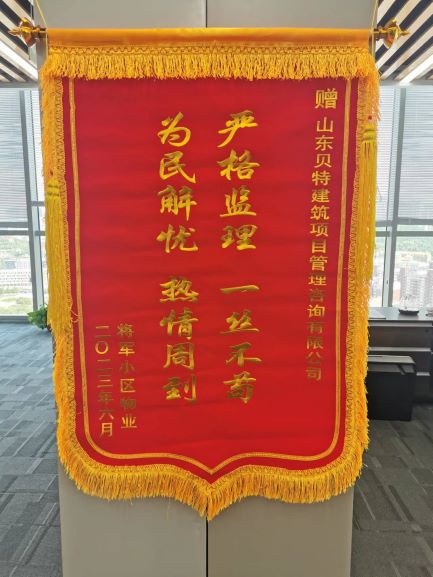 赠 山东贝特建筑项目管理咨询有限公司
严格监理 一丝不苟
为民解忧 热情周到
将军小区物业
二〇二三年六月